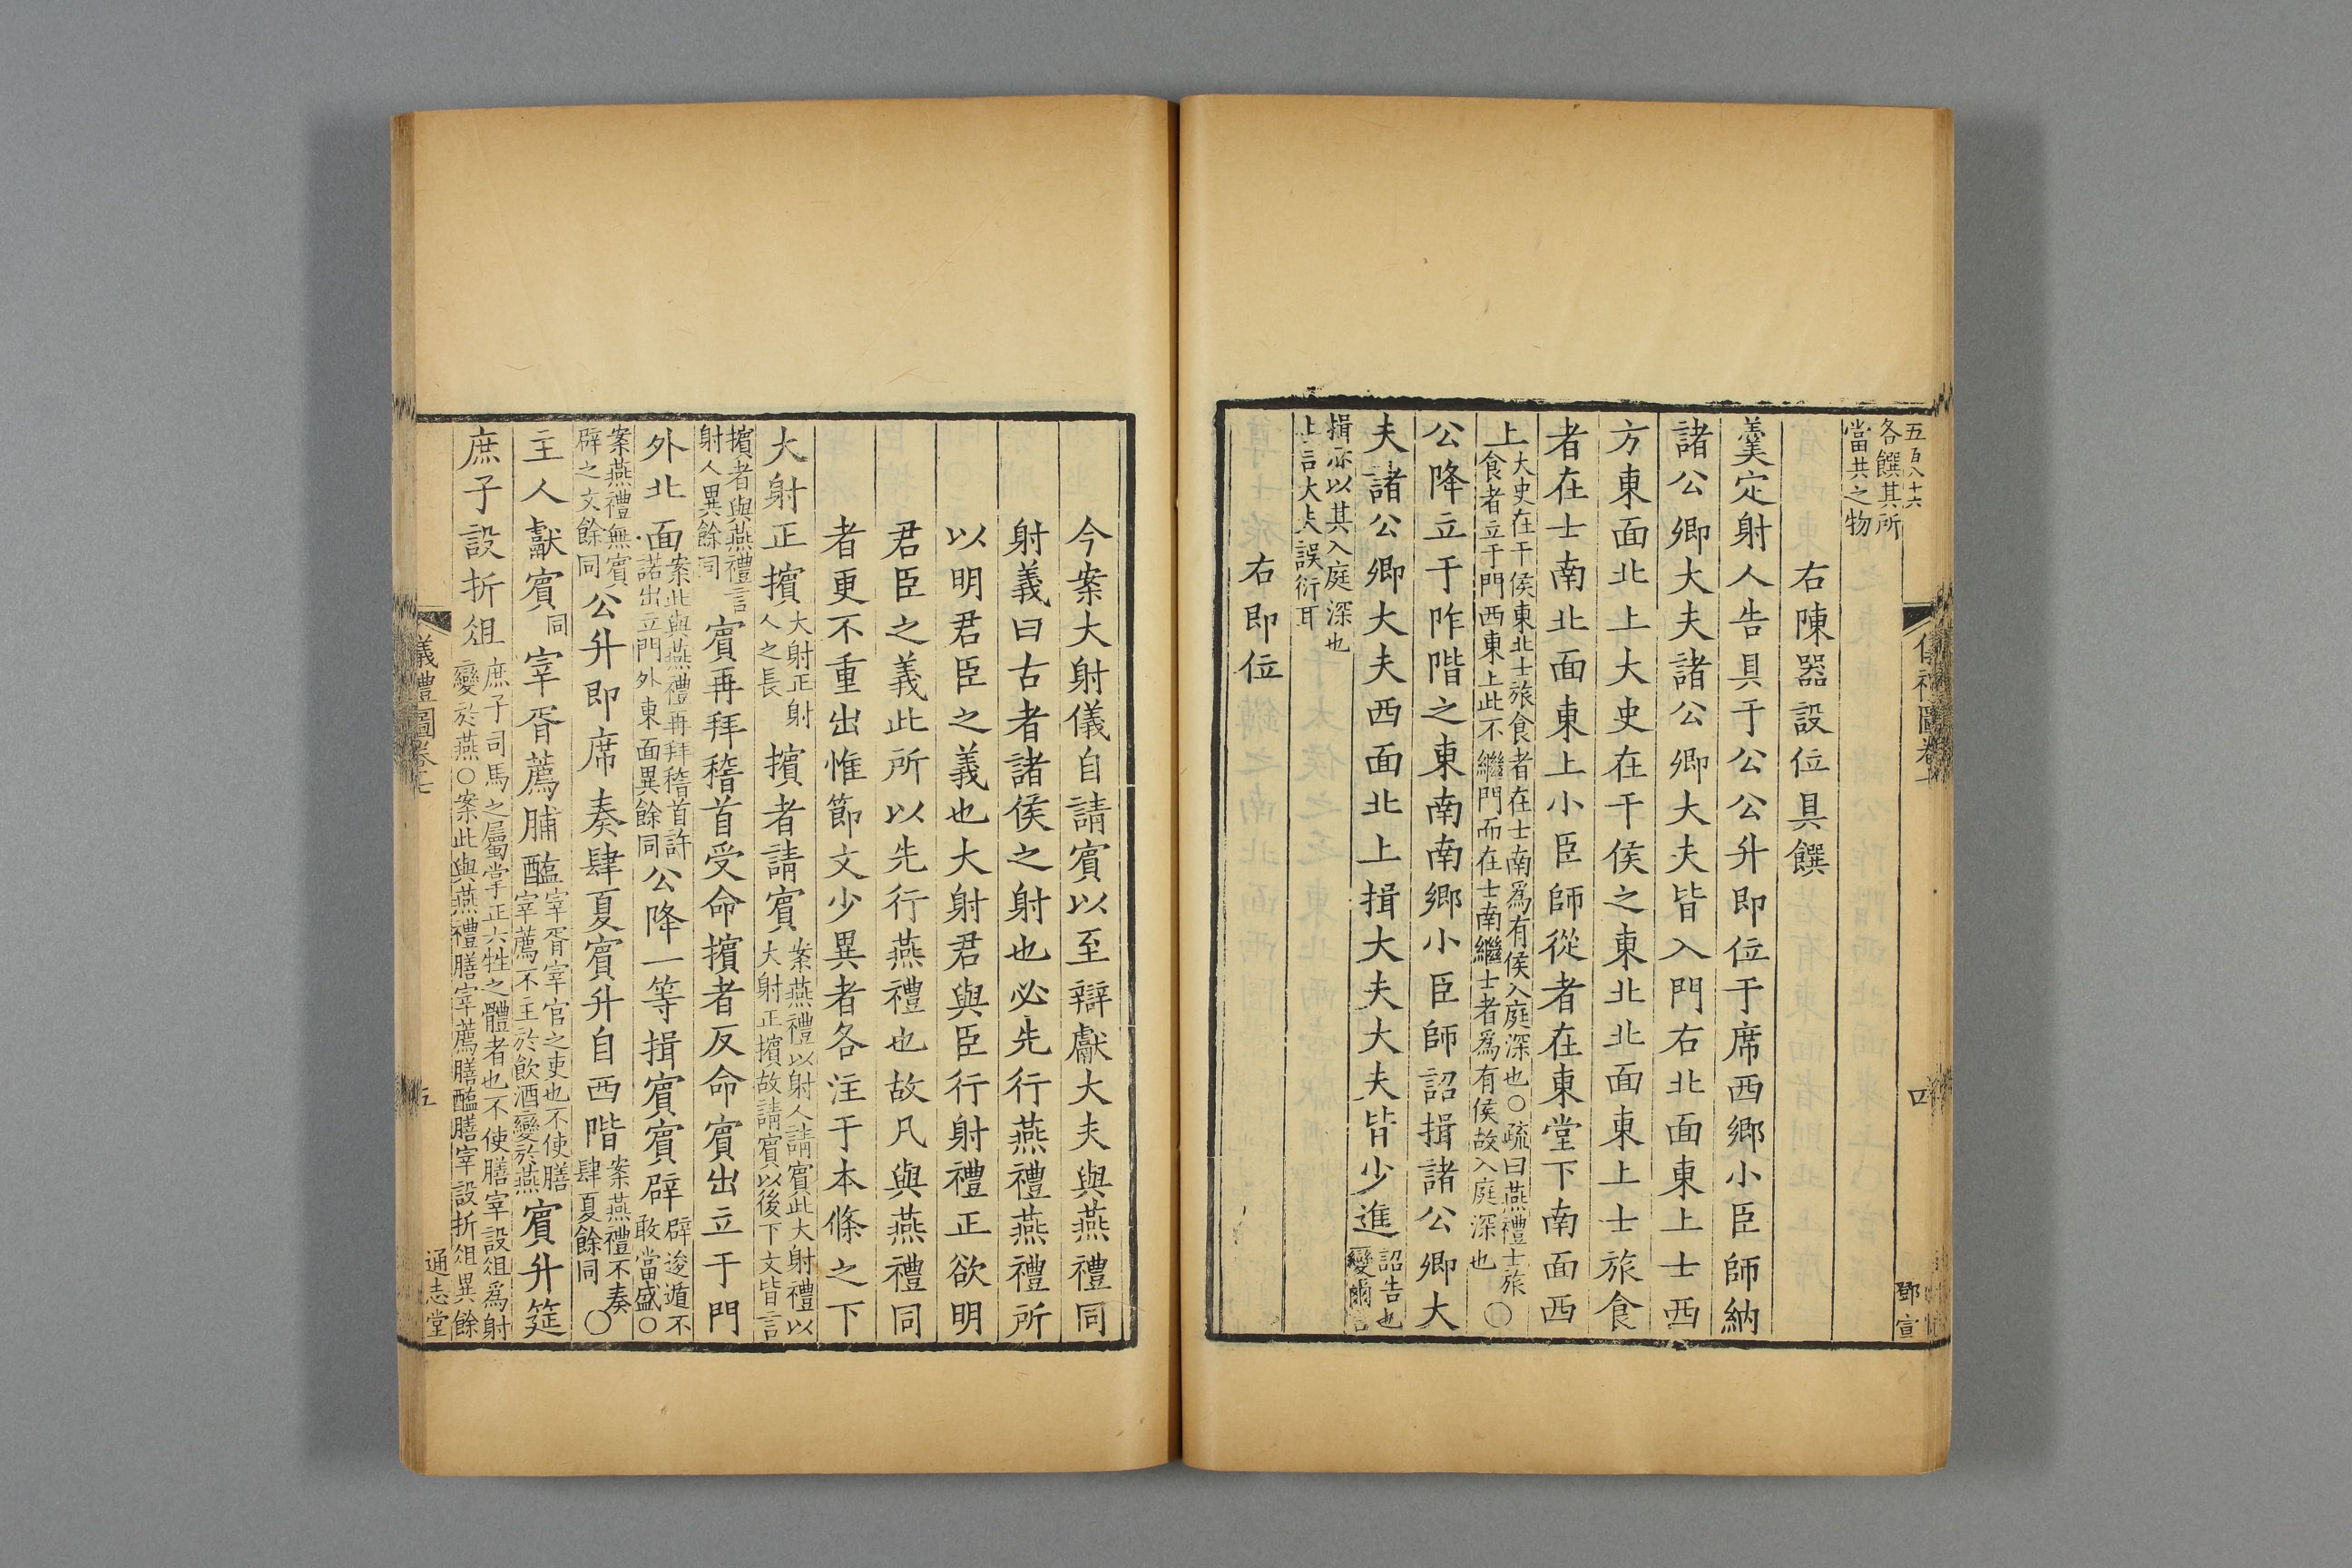 五百八十六
各饌其所
當共之物
右陳器設位具饌
羹定射人告具于公公升即位于席西鄉小臣師納
諸公卿大夫諸公卿大夫皆入門右北面東上士西
方東面北上大史在干侯之東北北面東上士旅食
者在士南北面東上小臣師從者在東堂下南面西
上大史在干侯東北士旅食者在士南爲有侯入庭深也○疏曰燕禮士旅
食者立于門西東上此不繼門而在士南繼士者爲有侯故入庭深也○
公降立于阼階之東南南鄉小臣師詔揖諸公卿大
夫諸公卿大夫西面北上揖大夫大夫皆少進詔告也
變爾言
揖亦以其入庭深也
上言大夫誤衍耳
右即位
儀禮圖卷七
四
鄧宣
今案大射儀自請賓以至辯獻大夫與燕禮同
射義曰古者諸侯之射也必先行燕禮燕禮所
以明君臣之義也大射君與臣行射禮正欲明
君臣之義此所以先行燕禮也故凡與燕禮同
者更不重出惟節文少異者各注于本條之下
大射正擯大射正射
人之長擯者請賓案燕禮以射人請賓此大射禮以
大射正擯故請賓以後下文皆言
擯者與燕禮言
射人異餘同賓再拜稽首受命擯者反命賓出立于門
外北面案此與燕禮再拜稽首許
諾出立門外東面異餘同公降一等揖賓賓辟辟逡遁不
敢當盛○
案燕禮無賓
辟之文餘同公升即席奏肆夏賓升自西階案燕禮不奏
肆夏餘同○
主人獻賓同宰胥薦脯醢宰胥宰官之吏也不使膳
宰薦不主於飲酒變於燕賓升筵
庶子設折俎庶子司馬之屬掌正六牲之體者也不使膳宰設俎爲射
變於燕○案此與燕禮膳宰薦膳醢膳宰設折俎異餘
儀禮圖卷七
五
通志堂